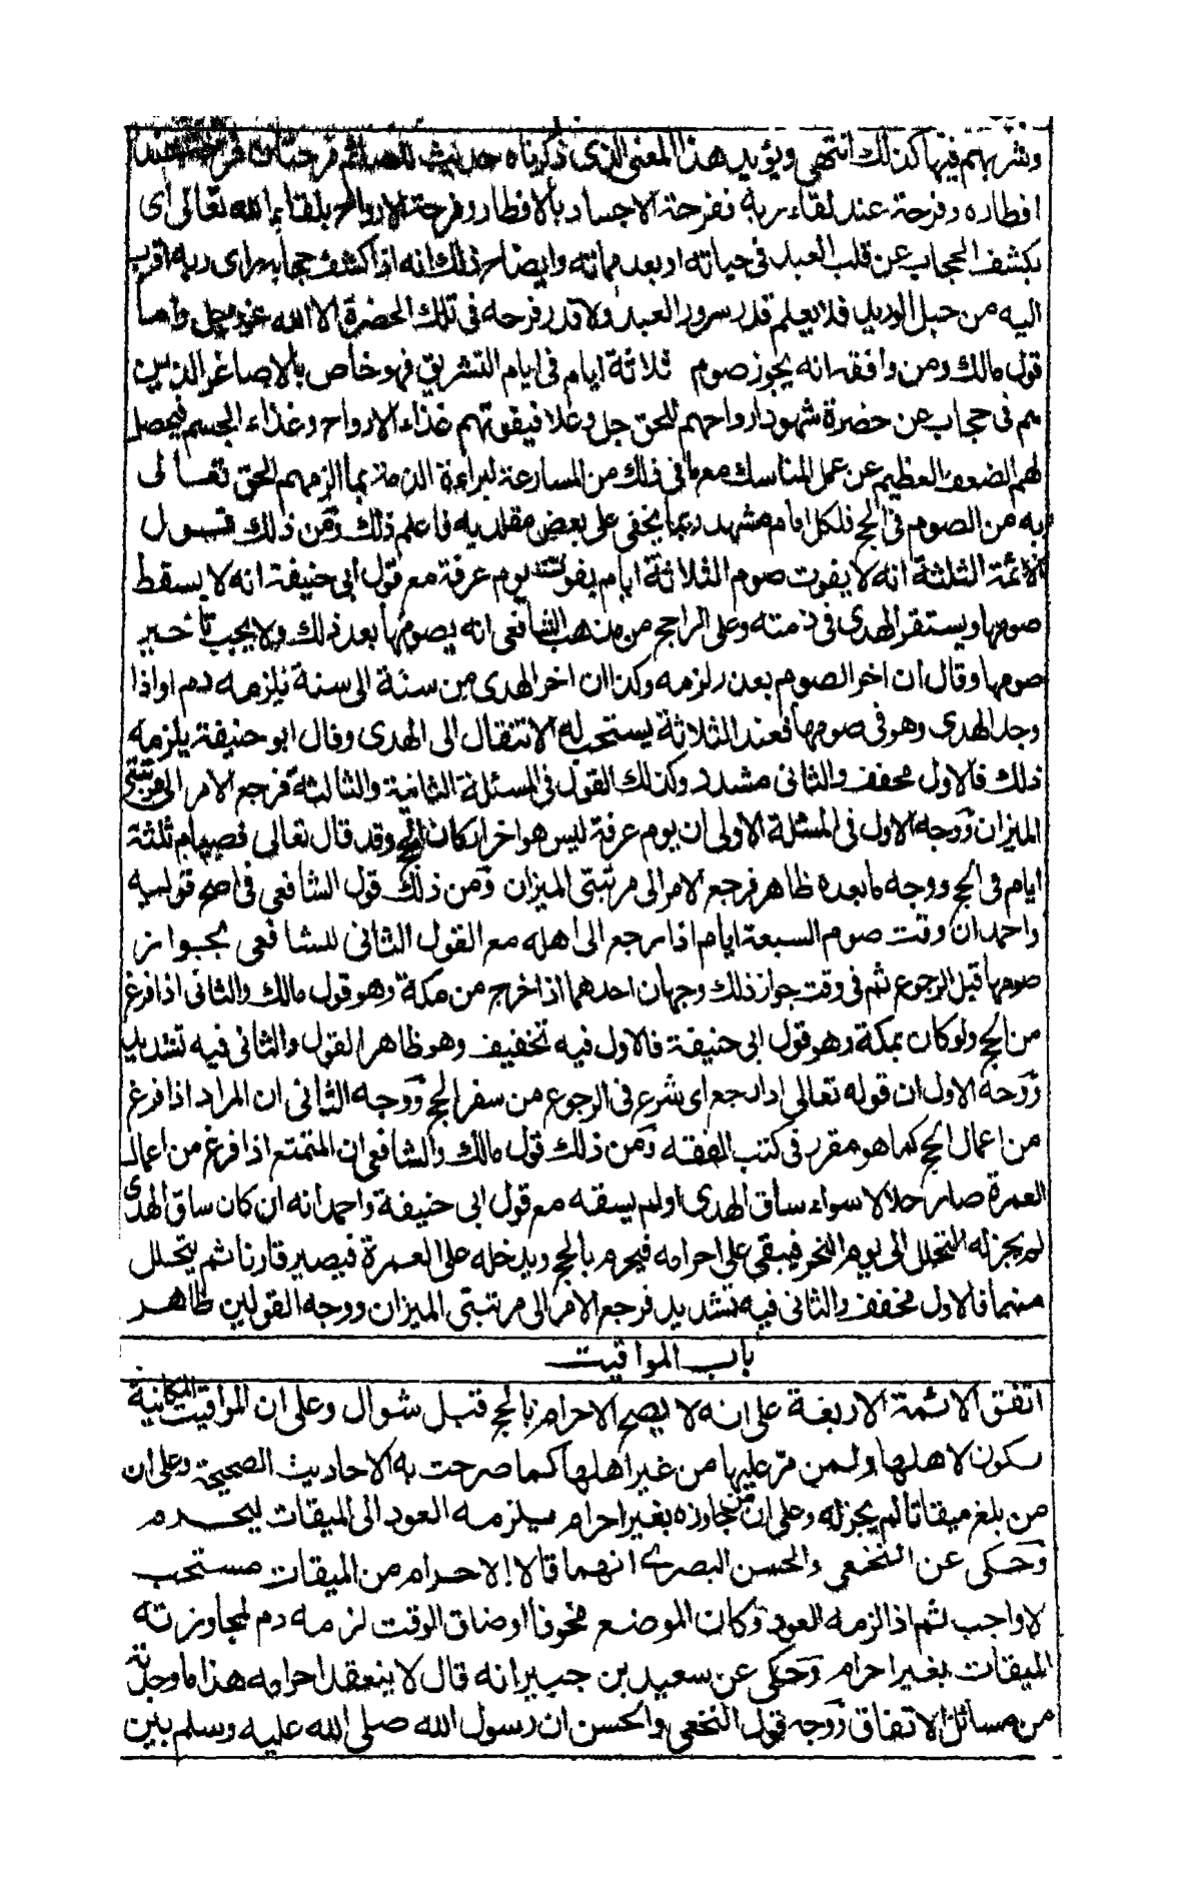 وشربهم فيها كذلك انتهى ويؤيد هذا المعنى الذى ذكرناه حديث للصائم فرحتان فرحة عند
افطاره وفرحة عند لقاء ربه ففرحة الاجساد بالافطار وفرحة الارواح بلقاء الله تعالى اى
بكشف الحجاب عن قلب العبد فى حياته او بعد مماته وايضاح ذلك انه اذا كشف حجابه راى ربه اقرب
اليه من حبل الوريد فلا يعلم قدر سرور العبد ولا قدر فرحه فى تلك الحضرة الا الله عز وجل واما
قول مالك ومن وافقه انه يجوز صوم ثلاثة ايام فى ايام التشريق فهو خاص بالاصاغر الذين
هم فى حجاب عن حضرة شهود ارواحهم للحق جل وعلا فيفوتهم غذاء الارواح وغذاء الجسم فيحصل
لهم الضعف العظيم عن عمل المناسك مع ما فى ذلك من المسارعة لبراءة الذمة بما الزمهم الحق تعالى
به من الصوم فى الحج فلكل امام مشهد ربما يخفى على بعض مقلديه فاعلم ذلك ومن ذلك قول
الائمة الثلثة انه لا يفوت صوم الثلاثة ايام بفوت يوم عرفة مع قول ابى حنيفة انه لا يسقط
صومها ويستقر الهدى فى ذمته وعلى الراجح من مذهب الشافعى انه يصومها بعد ذلك ولا يجب تاخير
صومها وقال ان اخر الصوم بعذر لزمه وكذا ان اخر الهدى من سنة الى سنة يلزمه دم او اذا
وجد الهدى وهو فى صومها فعند الثلاثة يستحب له الانتقال الى الهدى وقال ابو حنيفة يلزمه
ذلك فالاول مخفف والثانى مشدد وكذلك القول فى المسئلة الثانية والثالثة فرجع الامر الى مرتبتى
الميزان ووجه الاول فى المسئلة الاولى ان يوم عرفة ليس هو اخر اركان الحج وقد قال تعالى فصيام ثلثة
ايام فى الحج ووجه ما بعده ظاهر فرجع الامر الى مرتبتى الميزان ومن ذلك قول الشافعى فى اصح قوليه
واحمد ان وقت صوم السبعة ايام اذا رجع الى اهله مع القول الثانى للشافعى بجواز
صومها قبل الرجوع ثم فى وقت جواز ذلك وجهان احدهما اذا خرج من مكة وهو قول مالك والثانى اذا فرغ
من الحج ولو كان بمكة وهو قول ابى حنيفة فالاول فيه تخفيف وهو ظاهر القول والثانى فيه تشديد
ووجه الاول ان قوله تعالى اذا رجع اى شرع فى الرجوع من سفر الحج ووجه الثانى ان المراد اذا فرغ
من اعمال الحج كما هو مقرر فى كتب الفقه ومن ذلك قول مالك والشافعى ان المتمتع اذا فرغ من اعمال
العمرة صار حلالا سواء ساق الهدى او لم يسقه مع قول ابى حنيفة واحمد انه ان كان ساق الهدى
لم يجز له التحلل الى يوم النحر فيبقى على احرامه فيحرم بالحج ويدخله على العمرة فيصير قارنا ثم يتحلل
منهما فالاول مخفف والثانى فيه تشديد فرجع الامر الى مرتبتى الميزان ووجه القولين ظاهر
باب المواقيت
اتفق الائمة الاربعة على انه لا يصح الاحرام بالحج قبل شوال وعلى ان المواقيت المكانية
تكون لاهلها ولمن مر عليها من غير اهلها كما صرحت به الاحاديث الصحيحة وعلى ان
من بلغ ميقاتا لم يجز له وعلى ان من جاوزه بغير احرام يلزمه العود الى الميقات ليحرم
وحكى عن النخعى والحسن البصرى انهما قالا الاحرام من الميقات مستحب
لا واجب ثم اذا لزمه العود وكان الموضع مخوفا او ضاق الوقت لزمه دم لمجاوزته
الميقات بغير احرام وحكى عن سعيد بن جبير انه قال لا ينعقد احرامه هذا ما وجدته
من مسائل الاتفاق ووجه قول النخعى والحسن ان رسول الله صلى الله عليه وسلم بين